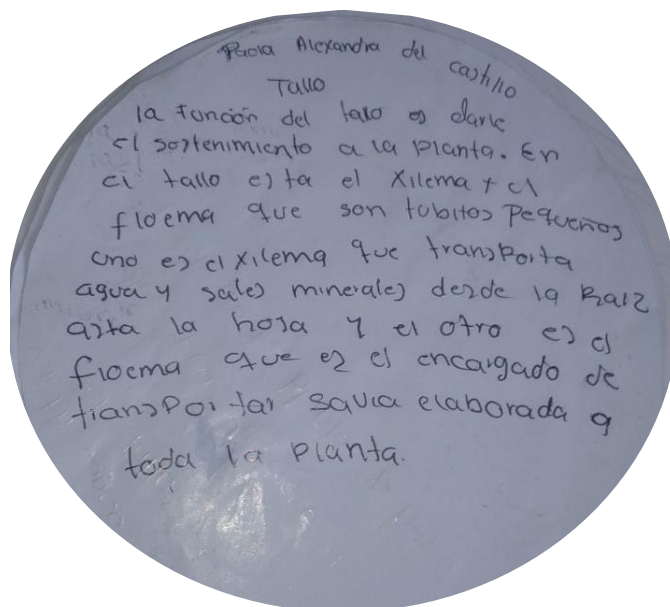 Paola Alexandra del castillo
Tallo
la función del talo es darle
el sostenimiento a la planta. En
el tallo esta el xilema y el
floema que son tubitos pequeños
uno es el xilema que transporta
agua y sales minerales desde la Raiz
asta la hoja y el otro es el
floema que es el encargado de
transportar savia elaborada a
toda la planta.